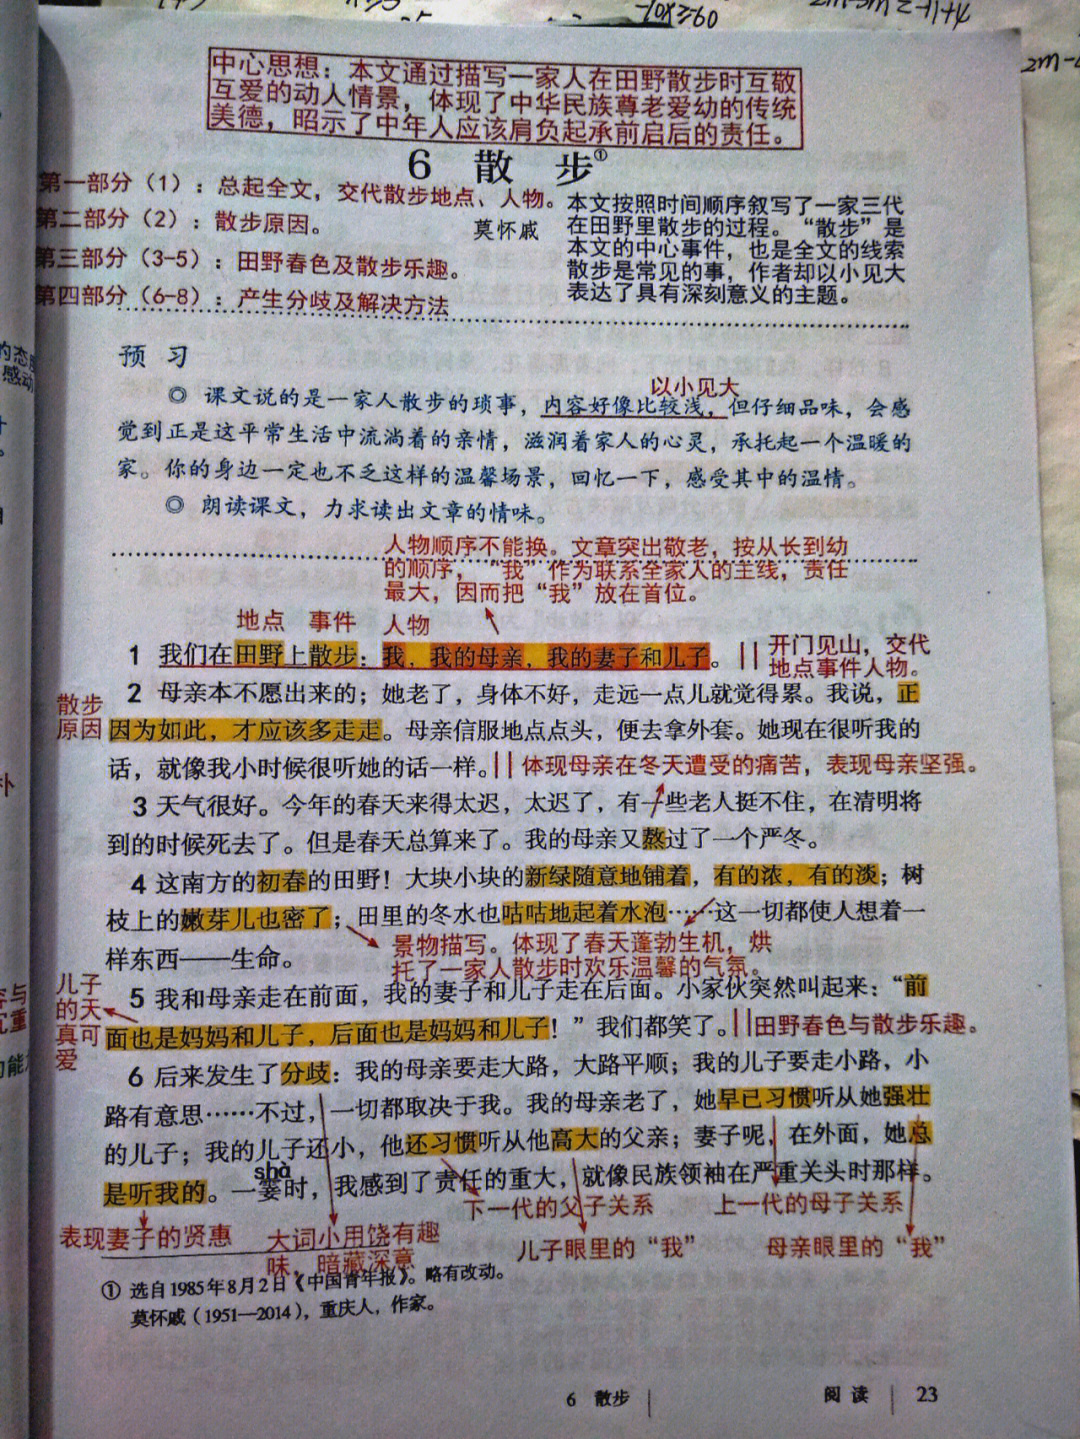 中心思想：本文通过描写一家人在田野散步时互敬
互爱的动人情景，体现了中华民族尊老爱幼的传统
美德，昭示了中年人应该肩负起承前启后的责任。
6 散 步①
第一部分（1）：总起全文，交代散步地点、人物。
第二部分（2）：散步原因。
第三部分（3-5）：田野春色及散步乐趣。
第四部分（6-8）：产生分歧及解决方法
莫怀戚
本文按照时间顺序叙写了一家三代
在田野里散步的过程。“散步”是
本文的中心事件，也是全文的线索
散步是常见的事，作者却以小见大
表达了具有深刻意义的主题。
预 习
以小见大
◎ 课文说的是一家人散步的琐事，内容好像比较浅，但仔细品味，会感
觉到正是这平常生活中流淌着的亲情，滋润着家人的心灵，承托起一个温暖的
家。你的身边一定也不乏这样的温馨场景，回忆一下，感受其中的温情。
◎ 朗读课文，力求读出文章的情味。
人物顺序不能换。文章突出敬老，按从长到幼
的顺序，“我”作为联系全家人的主线，责任
最大，因而把“我”放在首位。
地点 事件 人物
1 我们在田野上散步：我，我的母亲，我的妻子和儿子。
开门见山，交代
地点事件人物。
散步
原因
2 母亲本不愿出来的；她老了，身体不好，走远一点儿就觉得累。我说，正
因为如此，才应该多走走。母亲信服地点点头，便去拿外套。她现在很听我的
话，就像我小时候很听她的话一样。
体现母亲在冬天遭受的痛苦，表现母亲坚强。
3 天气很好。今年的春天来得太迟，太迟了，有一些老人挺不住，在清明将
到的时候死去了。但是春天总算来了。我的母亲又熬过了一个严冬。
4 这南方的初春的田野！大块小块的新绿随意地铺着，有的浓，有的淡；树
枝上的嫩芽儿也密了；田里的冬水也咕咕地起着水泡……这一切都使人想着一
样东西——生命。
景物描写。体现了春天蓬勃生机，烘
托了一家人散步时欢乐温馨的气氛。
儿子
的天
真可
爱
5 我和母亲走在前面，我的妻子和儿子走在后面。小家伙突然叫起来：“前
面也是妈妈和儿子，后面也是妈妈和儿子！”我们都笑了。
田野春色与散步乐趣。
6 后来发生了分歧：我的母亲要走大路，大路平顺；我的儿子要走小路，小
路有意思……不过，一切都取决于我。我的母亲老了，她早已习惯听从她强壮
的儿子；我的儿子还小，他还习惯听从他高大的父亲；妻子呢，在外面，她总
是听我的。一霎时，我感到了责任的重大，就像民族领袖在严重关头时那样。
shà
下一代的父子关系
上一代的母子关系
表现妻子的贤惠
大词小用饶有趣
味，暗藏深意
儿子眼里的“我”
母亲眼里的“我”
① 选自1985年8月2日《中国青年报》。略有改动。
莫怀戚（1951—2014），重庆人，作家。
6 散步
阅读
23